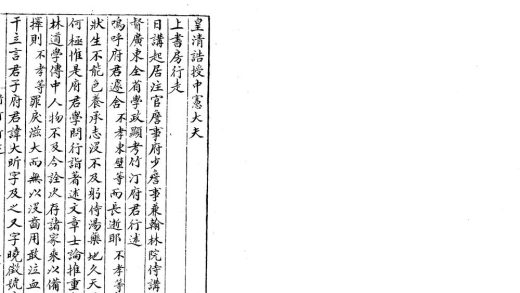 皇清誥授中憲大夫
上書房行走
日講起居注官詹事府少詹事兼翰林院侍講
督廣東全省學政顯考竹汀府君行述
嗚呼府君遽舍不孝東壁等而長逝耶不孝等
狀生不能色養承志沒不及躬侍湯藥地久天
何極惟是府君學問行詣著述文章士論推重
林道學傳中人物不及今詮次存諸家乘以備
擇則不孝等罪戾滋大而無以沒齒用敢泣血
干立言君子府君諱大昕字及之又字曉徵號